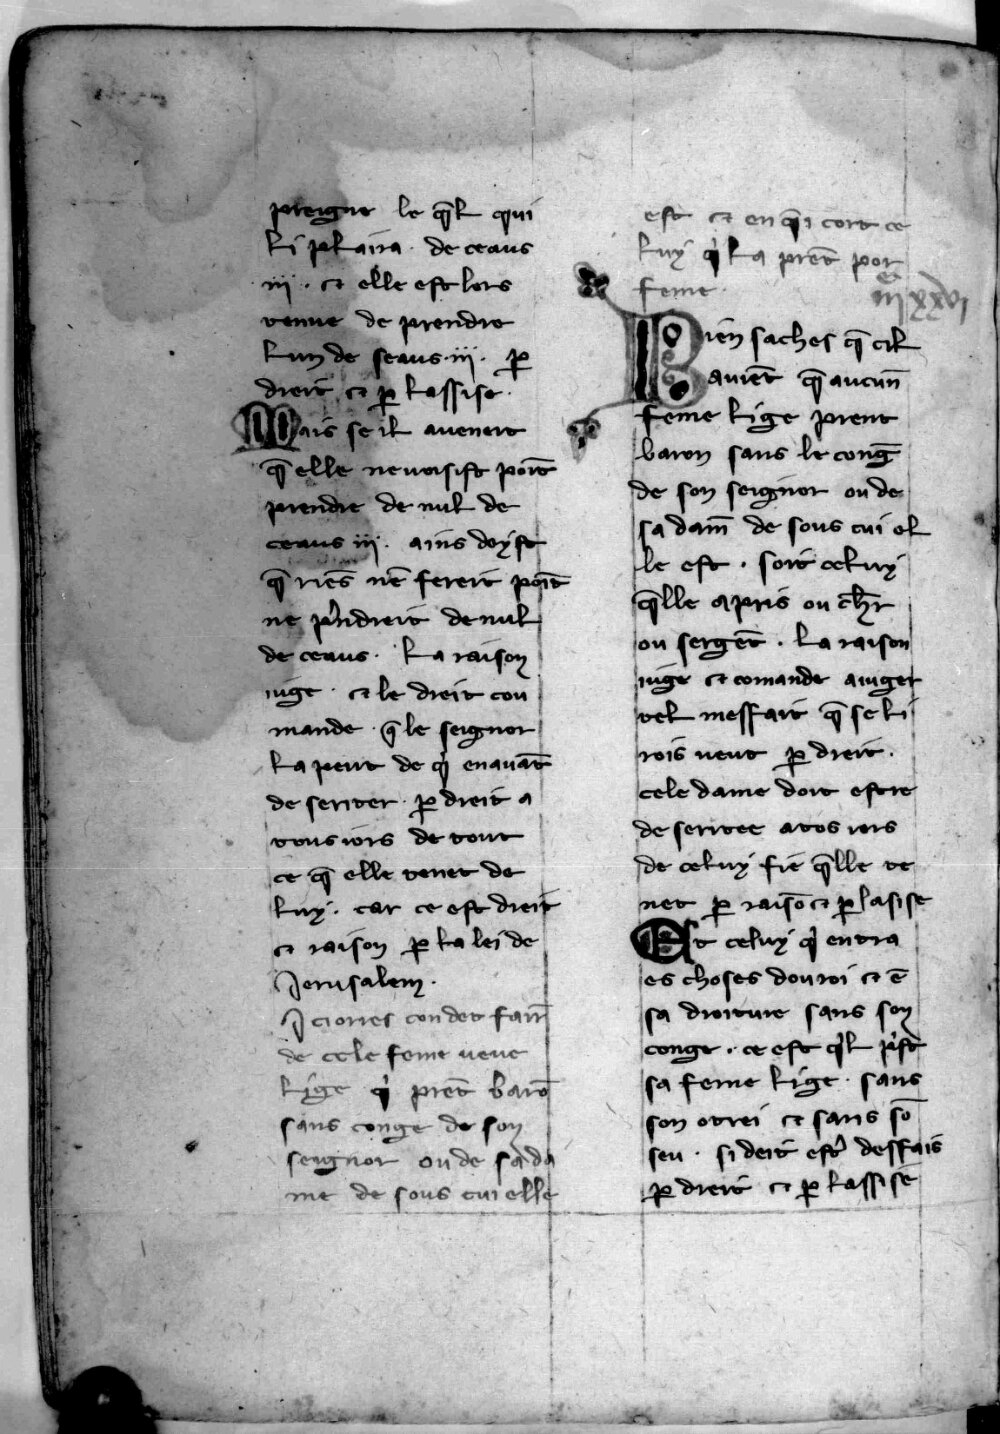 preigne le q̄l qui
li plaira · de ceaus
iii · et elle est lors
venue de prendre
l'un de seaus · iii · ꝑ
dreit et ꝑ lassise ·
Mais se il avenett
q̄ elle ne vosist poīt
prendre de nul de
ceaus iii · ains deyst
q̄ riēs nē fereit poīt
ne p̉ndreit de nul
de ceaus · La raison
iuge · et le dreit cou
mande · q̄ le seignor
la peut de q̉ en avāt
deseriter · ꝑ dreit a
tous iors de tout
ce q̄ elle tenet de
luy · car ce est dreit
et raison ꝑ la lei de
Jerusalem ·
Ici ores con det faire
de cele feme veve
lige q̉ prēt barō
sans conge de son
seignor ou de sa da
me de sous cui elle
est et en q̄i cort ce
luy q̉ la prēt por
feme ·
iiii xxvi
Bien saches q̄ cil
avient q̄ aucun̄
feme lige prent
baron sans le conḡ
de son seignor ou de
sa dam̄ de sous cui el
le est · soit celuy
q̄lle a pris ou ch̄r
ou sergēt · La raison
iuge et comande a iuger
tel meffait q̄ se li
rois veut ꝑ dreit ·
cele dame doit estre
deseritee a tos iors
de celuy fie q̄lle te
net ꝑ raisō et ꝑ lasise
Et celuy q̉ entra
es choses dou roi et ē
sa droiture sans son
conge · ce est q̉l p̉st
sa feme lige · sans
son otrei et sans sō
seu · si deit est̉ desfais
ꝑ dreit et ꝑ lassise